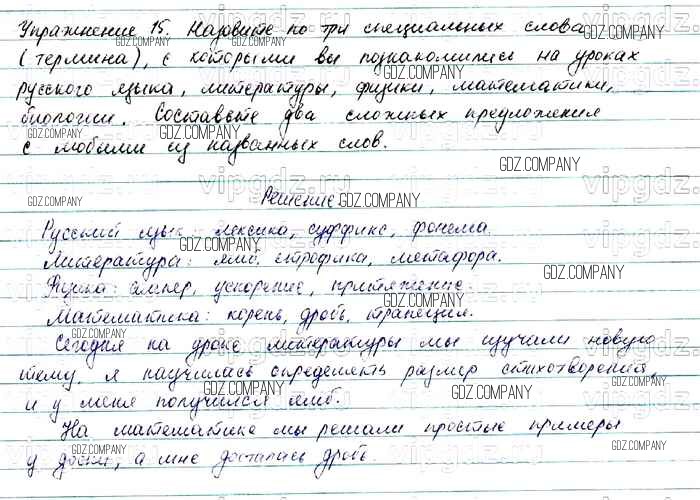 Упражнение 15. Назовите по три специальных слова
(термина), с которыми вы познакомились на уроках
русского языка, литературы, физики, математики,
биологии. Составьте два сложных предложения
с любыми из названных слов.
Решение
Русский язык: лексика, суффикс, фонема.
Литература: ямб, строфика, метафора.
Физика: ампер, ускорение, притяжение.
Математика: корень, дробь, трапеция.
Сегодня на уроке литературы мы изучали новую
тему, я научилась определять размер стихотворения
и у меня получился ямб.
На математике мы решали простые примеры
у доски, а мне досталась дробь.